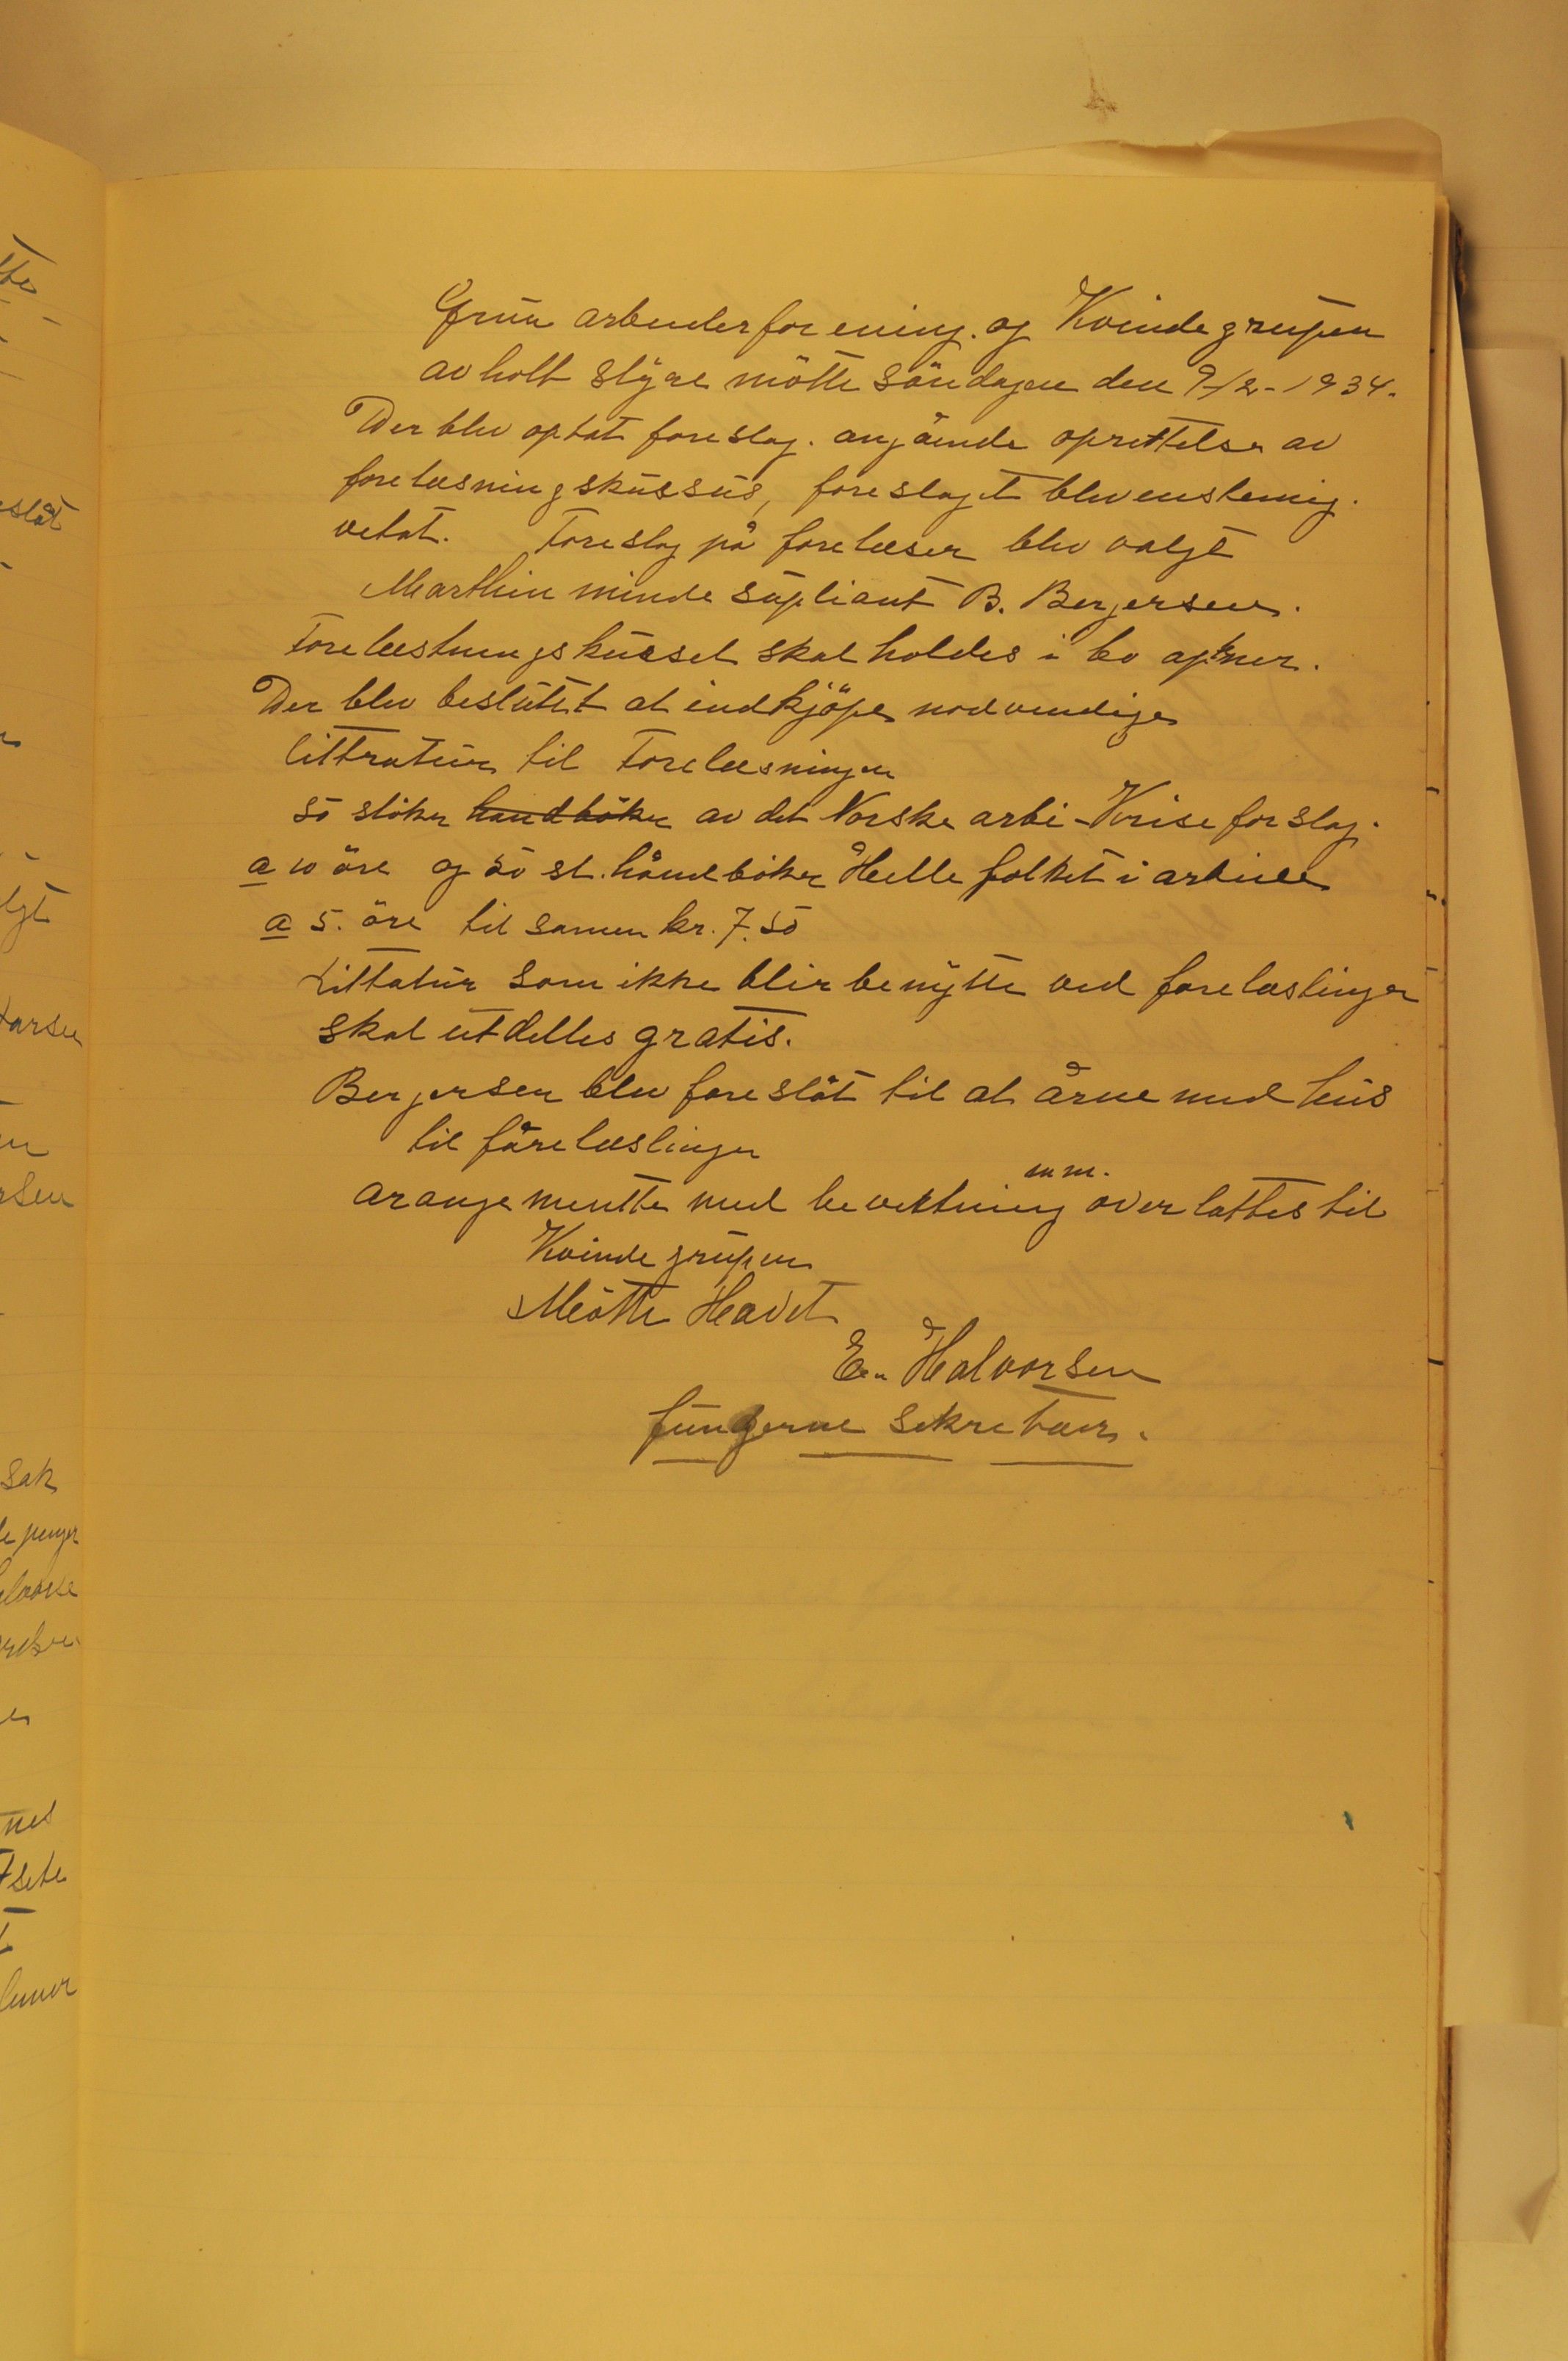 Grua arbeiderforening. og Kvindegrupen
avholt styre mötte söndagen den 9/12-1934.
Der blev optat foreslag. angående oprettelse av
forelæsningskussus, foreslaget blev enstemig.
vetat. Foreslag på forelæser blev valgt
Marthin minde supliant B. Bergersen.
Forelæstningskusset skal holdes i to aptner.
Der blev besluttet at indkjöpe nodvendige
littratur til Forelæsningen
50 stöker handböker av det Norske arbi-Krise forslag.
a 10 öre og 50 st. håndböker Helle folket i arbiee
a 5. öre til samen kr. 7.50
Littatur som ikke blir benytte ved forelæslinger
skal utdelles gratis.
Bergersen blev foreslåt til at årne med hus
til förelæslinger
arangementte med bevertning mm. overlattes til
Kvindegrupen
Mötte Hevet
E. Halvorsen
fungerne sekretær.
eslåt
lgt
rsen
Sak